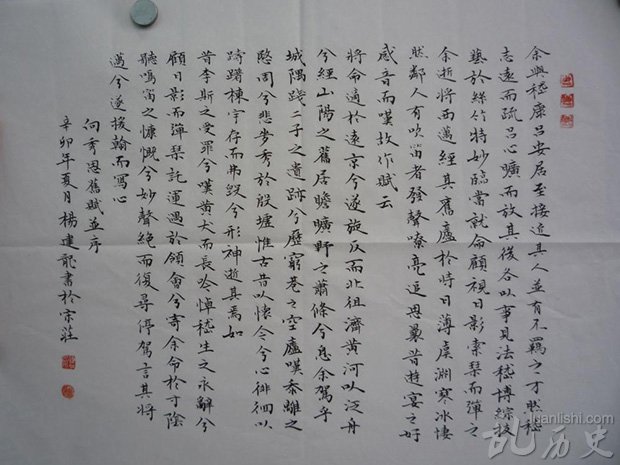 余與嵇康呂安居至接近其人並有不羈之才然嵇
志遠而疏呂心曠而放其後各以事見法嵇博綜技
藝於絲竹特妙臨當就命顧視日影索琴而彈之
余逝將西邁經其舊廬於時日薄虞淵寒冰悽
然鄰人有吹笛者發聲嘹亮追思曩昔遊宴之好
感音而嘆故作賦云
將命適於遠京兮遂旋反而北徂濟黃河以泛舟
兮經山陽之舊居瞻曠野之蕭條兮息余駕乎
城隅踐二子之遺跡兮歷窮巷之空廬嘆黍離之
愍周兮悲麥秀於殷墟惟古昔以懷今兮心徘徊以
躊躇棟宇存而弗毀兮形神逝其焉如
昔李斯之受罪兮嘆黃犬而長吟悼嵇生之永辭兮
顧日影而彈琴託運遇於領會兮寄余命於寸陰
聽鳴笛之慷慨兮妙聲絕而復尋停駕言其將
邁兮遂援翰而寫心
向秀思舊賦並序
辛卯年夏月楊建龍書於宗莊
luanlishi.com
乱历史